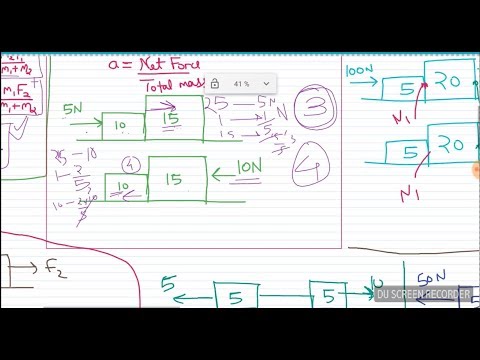 F₂m₁
m₁+m₂
m₁F₂
m₁+m₂
a = Net Force
Total mass
41%
5N
10
15
25 — 5N
1 → 1/5 N
3
25 — 10
1 — 2/5
4
10
15
10N
4
100N
5
20
N₁
5
20
N₁
F₂
5
5
5
10
50N
DU SCREEN RECORDER